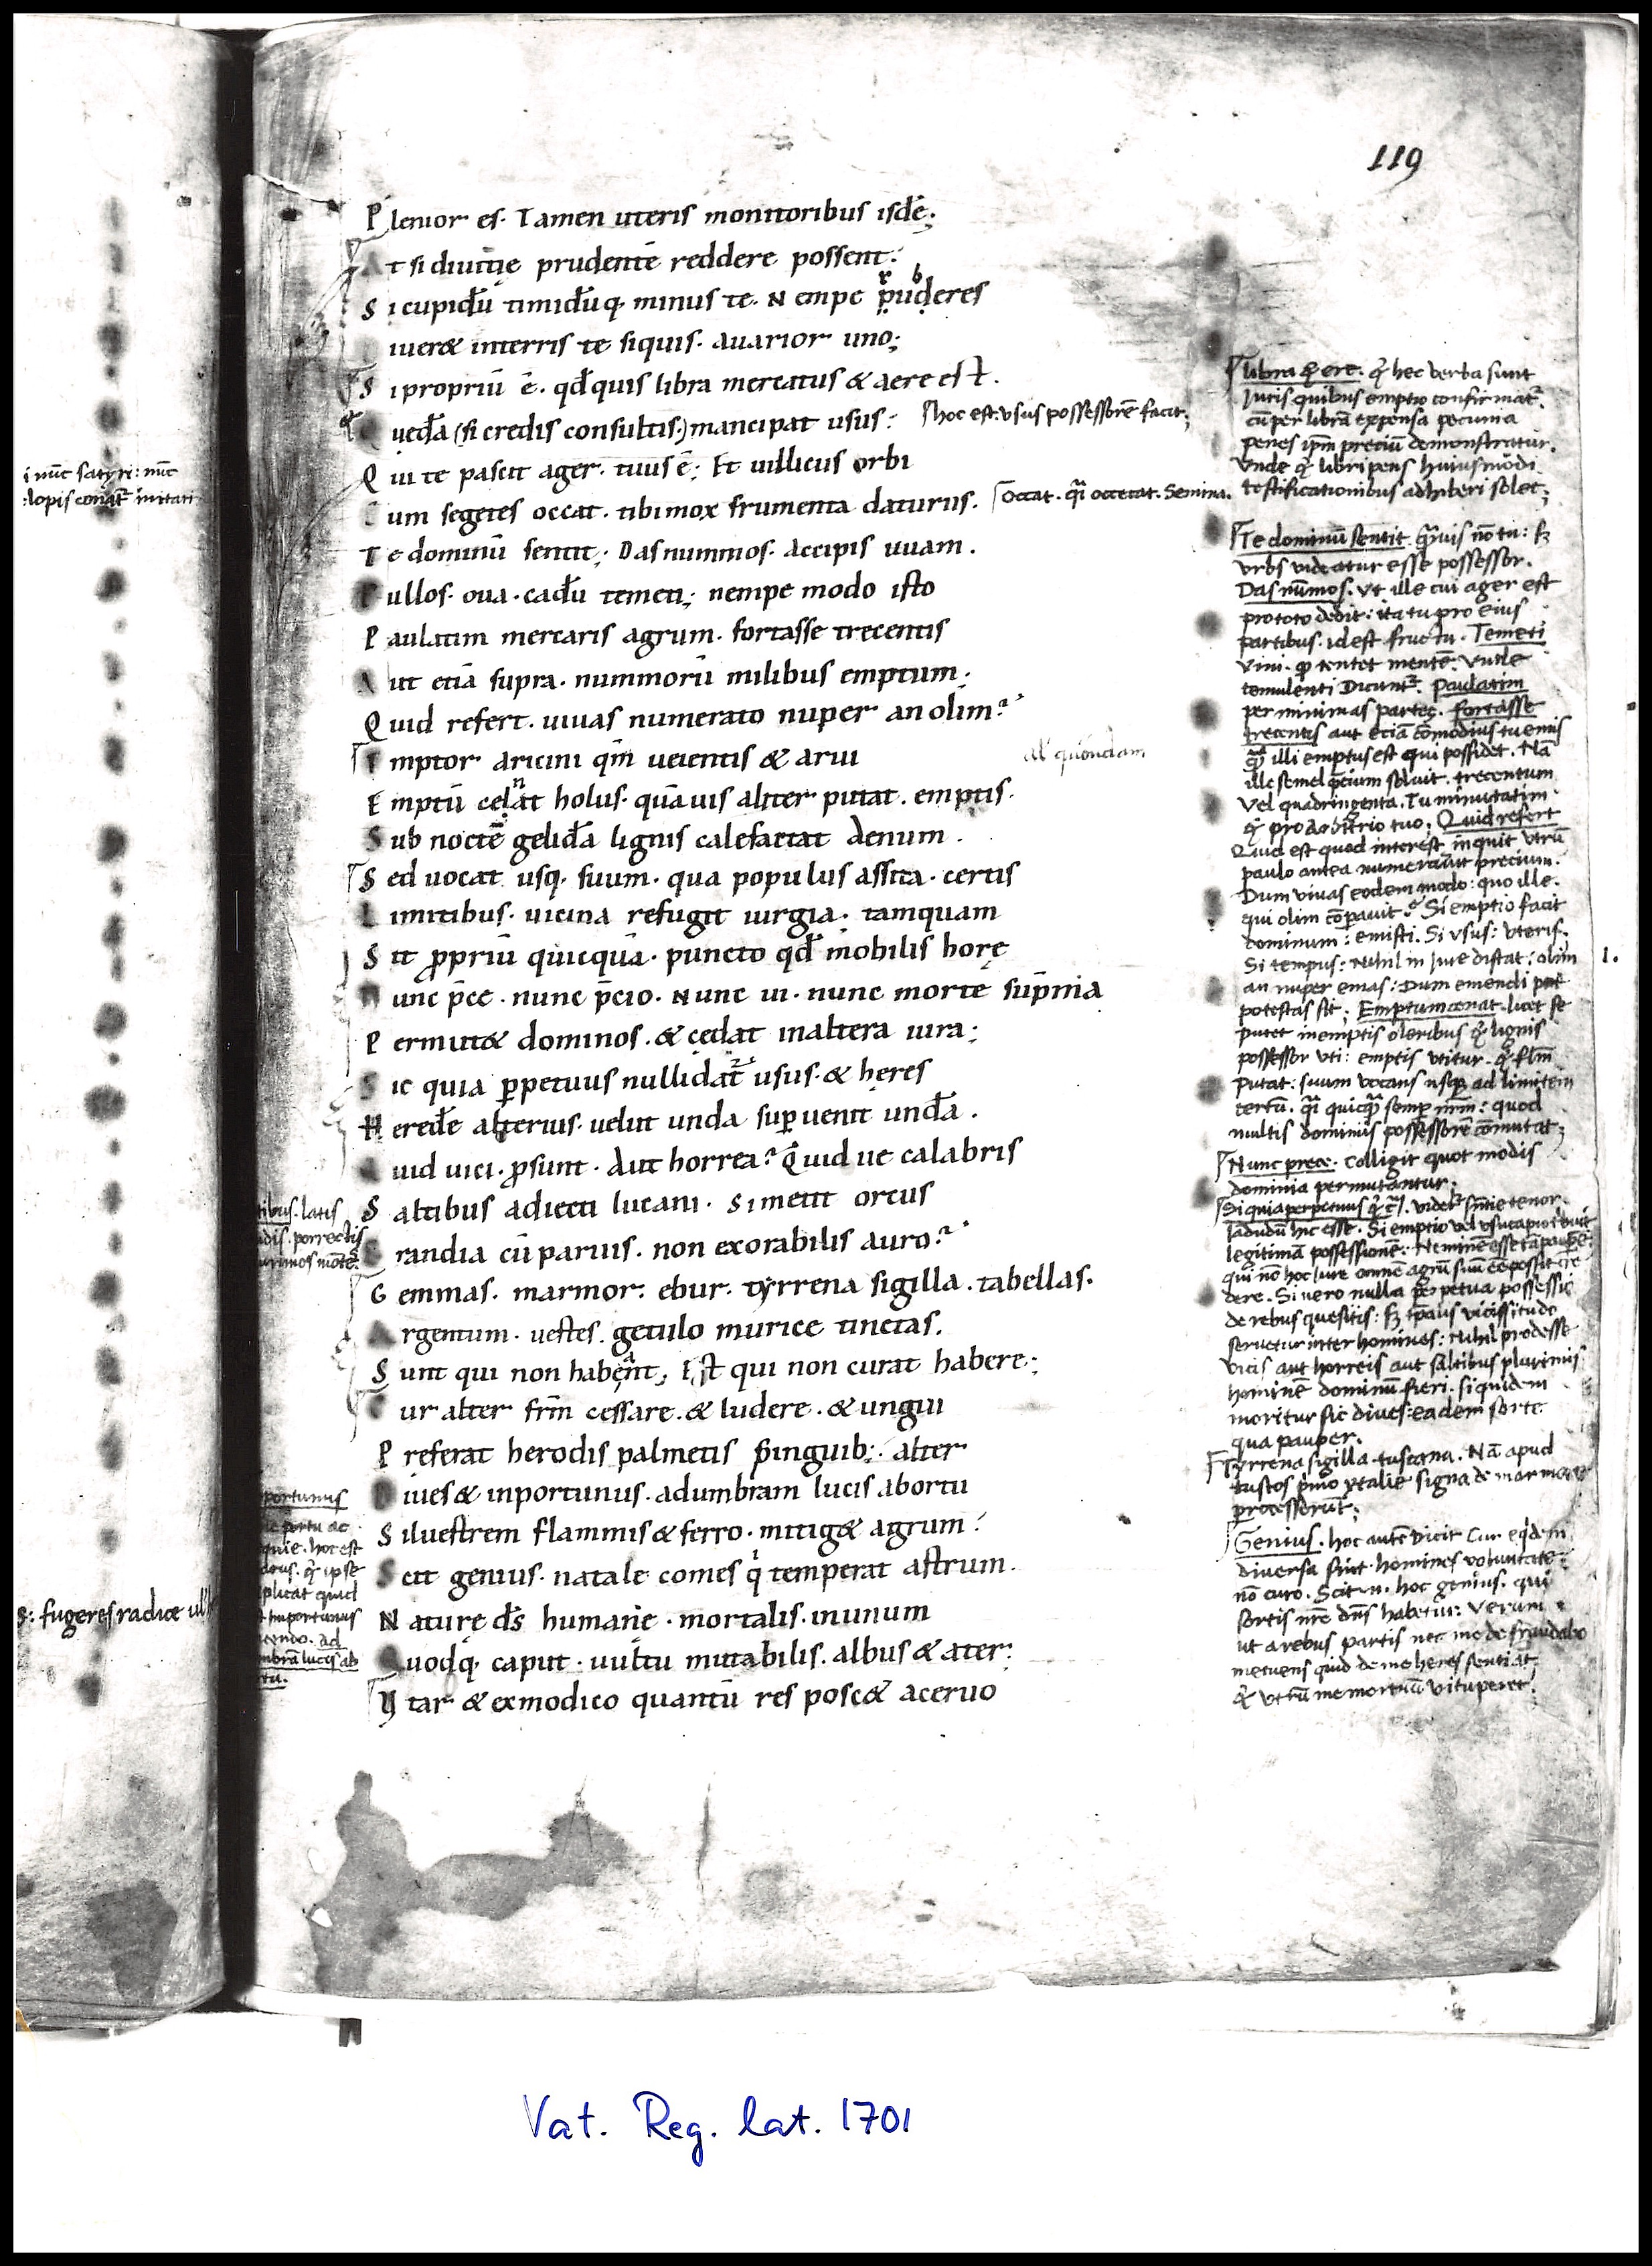 119
Plenior es. Tamen uteris monitoribus isdē;
At si diuitię prudentē reddere possent.
Si cupidū timidūq; minus te. Nempe p̄uderes
Viueret interris te siquis. auarior uno;
Si propriū ē. qd̄ quis libra mercatus & aere est.
Quedā (si credis consultis) mancipat usus: hoc est: vsus possessorē facit;
Qui te pascit ager. tuus ē; Et uillicus orbi
Cum segetes occat. tibi mox frumenta daturus. Occat. qr̄ occecat. Semina.
Te dominū sentit; Das nummos. accipis uuam.
Pullos. oua. cadū temeti; nempe modo isto
Paulatim mercaris agrum. fortasse trecentis
Aut etiā supra. nummorū milibus emptum.
Quid refert. uiuas numerato nuper an olim?
Emptor aricini qm̄ ueientis & arui
al' quondam
Emptū cenat holus. quāuis aliter putat. emptis.
Sub noctē gelidā lignis calefactat aenum.
Sed uocat usq; suum. qua populus assita. certis
Limitibus. uicina refugit iurgia. tamquam
Sit ꝓpriū quicquā. puncto qd̄ mobilis horę
Nunc p̄ce. nunc p̄cio. Nunc ui. nunc morte sup̄ma
Permutet dominos. & cedat in altera iura;
Sic quia ꝑpetuus nulli dat̄ usus. & heres
Heredē alterius. uelut unda suꝑuenit undā.
Quid uici. ꝓsunt. Aut horrea? Quid ue calabris
Saltibus adiecti lucani. Si metit orcus
Grandia cū paruis. non exorabilis auro?
Gemmas. marmor. ebur. tyrrena sigilla. tabellas.
Argentum. uestes. getulo murice tinctas.
Sunt qui non habeant, Est qui non curat habere;
Cur alter frm̄ cessare. & ludere. & ungui
Preferat herodis palmetis pinguib;. alter
Diues & inportunus. ad umbram lucis ab ortu
Siluestrem flammis & ferro. mitiget agrum?
Scit genius. natale comes q̇ temperat astrum.
Naturę ds̄ humanę. mortalis. inunum
Quodq; caput. uultu mutabilis. albus & ater;
Vtar & ex modico quantū res poscet aceruo
libra & ere. & hec verba sunt
Iuris quibus emptio confirmat̄.
cū per librā expensa pecunia
penes ipm̄ preciū demonstratur.
Vnde & libripens huiusmodi
testificationibus adhiberi solet;
Te dominū sentit. quāuis nō tu: sꝫ
vrbs videatur esse possessor.
Das nūmos. vt ille cui ager est
pro toto dedit: ita tu pro eius
partibus. id est fructu. Temeti
vini. q̄ tentet mentē. Vnde
temulenti Dicunt̄. Paulatim
per minimas partes. fortasse
trecentis aut etiā cōmodius tu emis
quā illi emptus est qui possidet. Nā
ille semel precium soluit. trecentum
vel quadringenta. Tu minutatim
& pro arbitrio tuo. Quid refert
Quid est quod interest inquit vtrū
paulo antea numerauit precium.
Dum viuas eodem modo: quo ille.
qui olim cōparauit? Si emptio facit
dominum: emisti. Si vsus: vteris.
Si tempus: Nihil in Iure distat: olim
an nuper emas: Dum emendi
potestas sit; Emptum cenat. licet se
putet inemptis oleribus & lignis
possessor vti: emptis vtitur.
Putat: suum vocans usq; ad limitem
certū. quod
multis dominis possessorē cōmutat;
Nunc prece. Colligit quot modis
dominia permutantur.
legitimā possessionē:
dere. Si vero nulla perpetua possessio
de rebus quesitis: vicissitudo
seruetur inter homines: Nihil prodesse
vicis aut horreis aut saltibus plurimis
hominē dominū fieri. siquidem
moritur sic diues: eadem sorte
qua pauper.
Tyrrena sigilla. tuscana. Nā apud
tuscos p̄mo ytalie signa de marmore
processerūt;
Genius. hoc autē Dicit Cur eqdem
diuersa sint hominēs voluntate:
nō curo. Scit eñ. hoc genius. qui
sortis nr̄e dn̄s habetur: Verum
ut a rebus partis nec me defraudabo
metuens quid de me heres sentiat
& vtrū me mortuū vituperet;
i nūc satyri: nūc
clopis conat̄ imitari
tibus. latis
idis. porrectis
portunus
quie. hoc est
deus. & ipse
plicat quid
importunus
ad
umbrā lucis ab
rtu.
s: fugeres radice ul'
Vat. Reg. lat. 1701